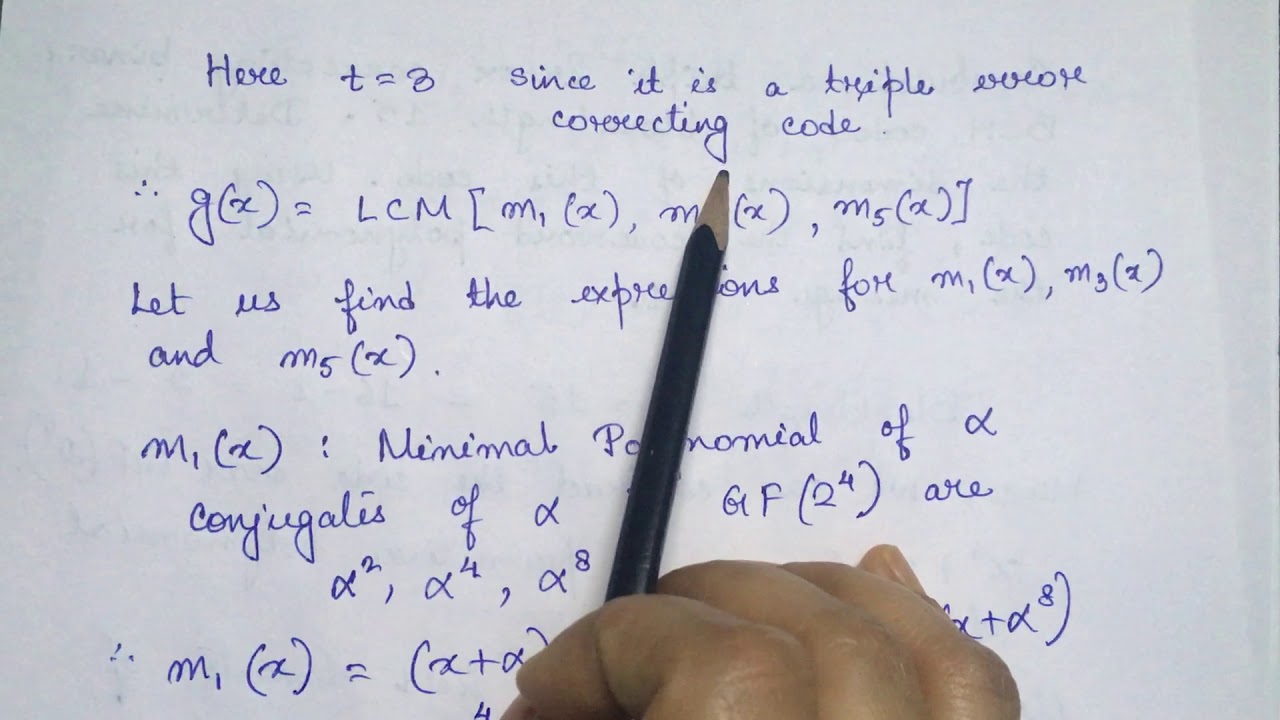 Here t=3 since it is a triple error
correcting code.
∴ g(x) = LCM [m₁(x), m (x), m₅(x)]
Let us find the expressions for m₁(x), m₃(x)
and m₅(x).
m₁(x) : Minimal Polynomial of α
conjugates of α GF(2⁴) are
α², α⁴, α⁸
∴ m₁(x) = (x+α) x+α⁸)
4